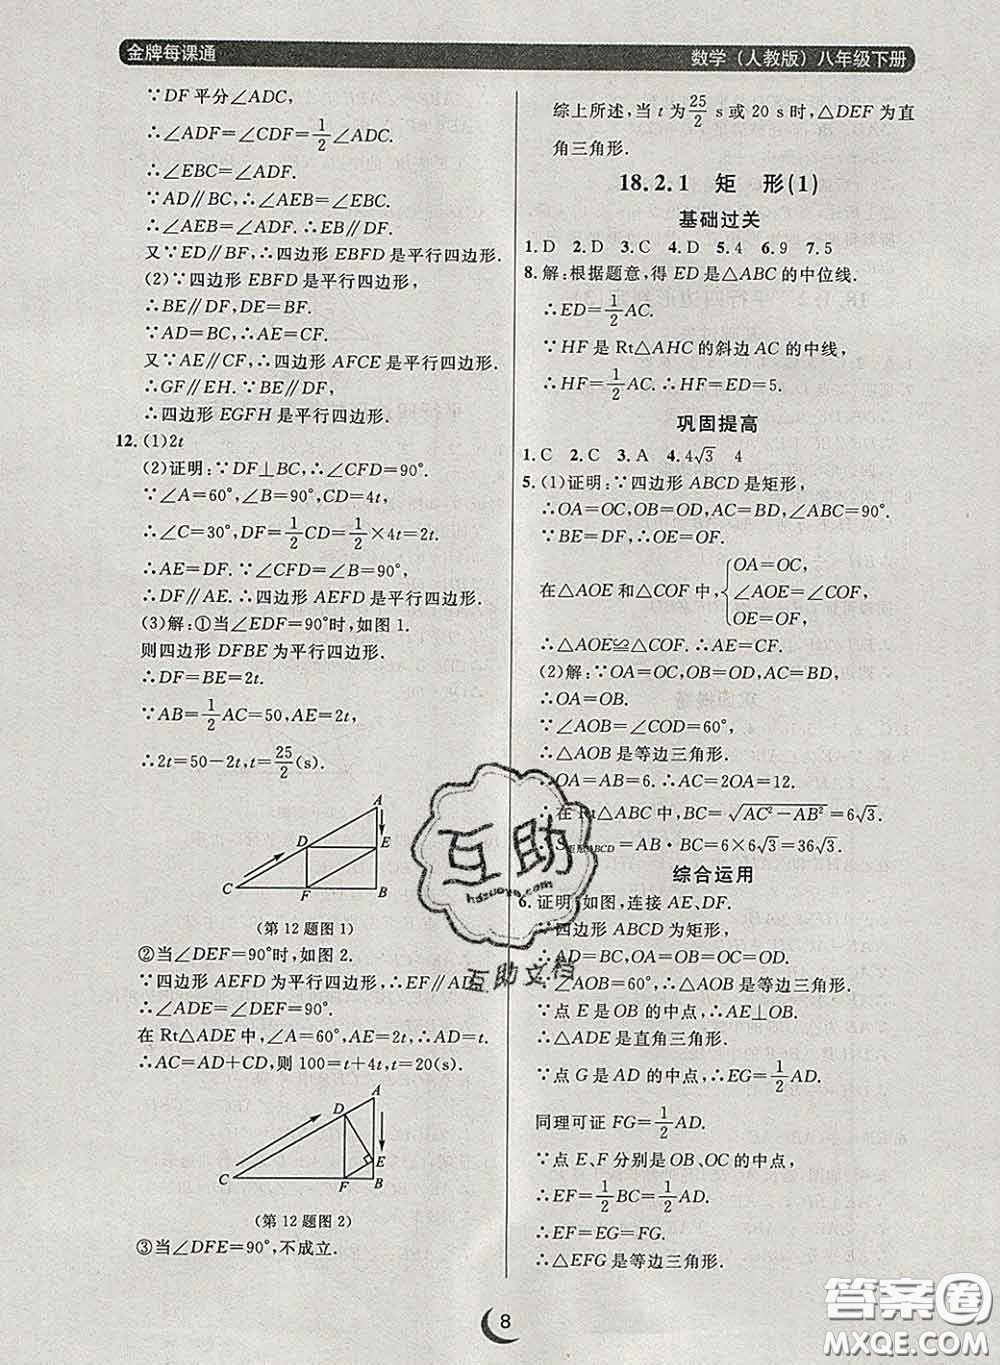 金牌每课通
数学（人教版）八年级下册
∵DF平分∠ADC,
∴∠ADF=∠CDF=1/2∠ADC.
∴∠EBC=∠ADF.
∵AD∥BC,∴∠AEB=∠EBC.
∴∠AEB=∠ADF.∴EB∥DF.
又∵ED∥BF,∴四边形EBFD是平行四边形.
(2)∵四边形EBFD是平行四边形,
∴BE∥DF,DE=BF.
∵AD=BC,∴AE=CF.
又∵AE∥CF,∴四边形AFCE是平行四边形.
∴GF∥EH.∵BE∥DF,
∴四边形EGFH是平行四边形.
12.(1)2t
(2)证明:∵DF⊥BC,∴∠CFD=90°.
∵∠A=60°,∠B=90°,CD=4t,
∴∠C=30°,DF=1/2CD=1/2×4t=2t.
∴AE=DF.∵∠CFD=∠B=90°,
∴DF∥AE.∴四边形AEFD是平行四边形.
(3)解:①当∠EDF=90°时,如图1.
则四边形DFBE为平行四边形.
∴DF=BE=2t.
∵AB=1/2AC=50,AE=2t,
∴2t=50-2t,t=25/2(s).
A
D
E
C
F
B
(第12题图1)
②当∠DEF=90°时,如图2.
∵四边形AEFD为平行四边形,∴EF∥AD.
∴∠ADE=∠DEF=90°.
在Rt△ADE中,∠A=60°,AE=2t,∴AD=t.
∴AC=AD+CD,则100=t+4t,t=20(s).
A
D
E
C
F
B
(第12题图2)
③当∠DFE=90°,不成立.
综上所述,当t为25/2 s或20 s时,△DEF为直
角三角形.
18.2.1 矩 形(1)
基础过关
1.D 2.D 3.C 4.D 5.4 6.9 7.5
8.解:根据题意,得ED是△ABC的中位线.
∴ED=1/2AC.
∵HF是Rt△AHC的斜边AC的中线,
∴HF=1/2AC.∴HF=ED=5.
巩固提高
1.C 2.C 3.A 4.4√3 4
5.(1)证明:∵四边形ABCD是矩形,
∴OA=OC,OB=OD,AC=BD,∠ABC=90°.
∵BE=DF,∴OE=OF.
在△AOE和△COF中,{OA=OC,
∠AOE=∠COF,
OE=OF,
∴△AOE≌△COF.∴AE=CF.
(2)解:∵OA=OC,OB=OD,AC=BD,
∴OA=OB.
∵∠AOB=∠COD=60°,
∴△AOB是等边三角形.
∴OA=AB=6.∴AC=2OA=12.
∴在Rt△ABC中,BC=√(AC²-AB²)=6√3.
∴S矩形ABCD=AB·BC=6×6√3=36√3.
综合运用
6.证明:如图,连接AE、DF.
∵四边形ABCD为矩形,
∴AD=BC,OA=OB=OC=OD.
∵∠AOB=60°,∴△AOB是等边三角形.
∵点E是OB的中点,∴AE⊥OB.
∴△ADE是直角三角形.
∵点G是AD的中点,∴EG=1/2AD.
同理可证FG=1/2AD.
∵点E、F分别是OB、OC的中点,
∴EF=1/2BC=1/2AD.
∴EF=EG=FG.
∴△EFG是等边三角形.
8
互助
hdzuoye.com
互助文档
答案圈
MXQE.COM